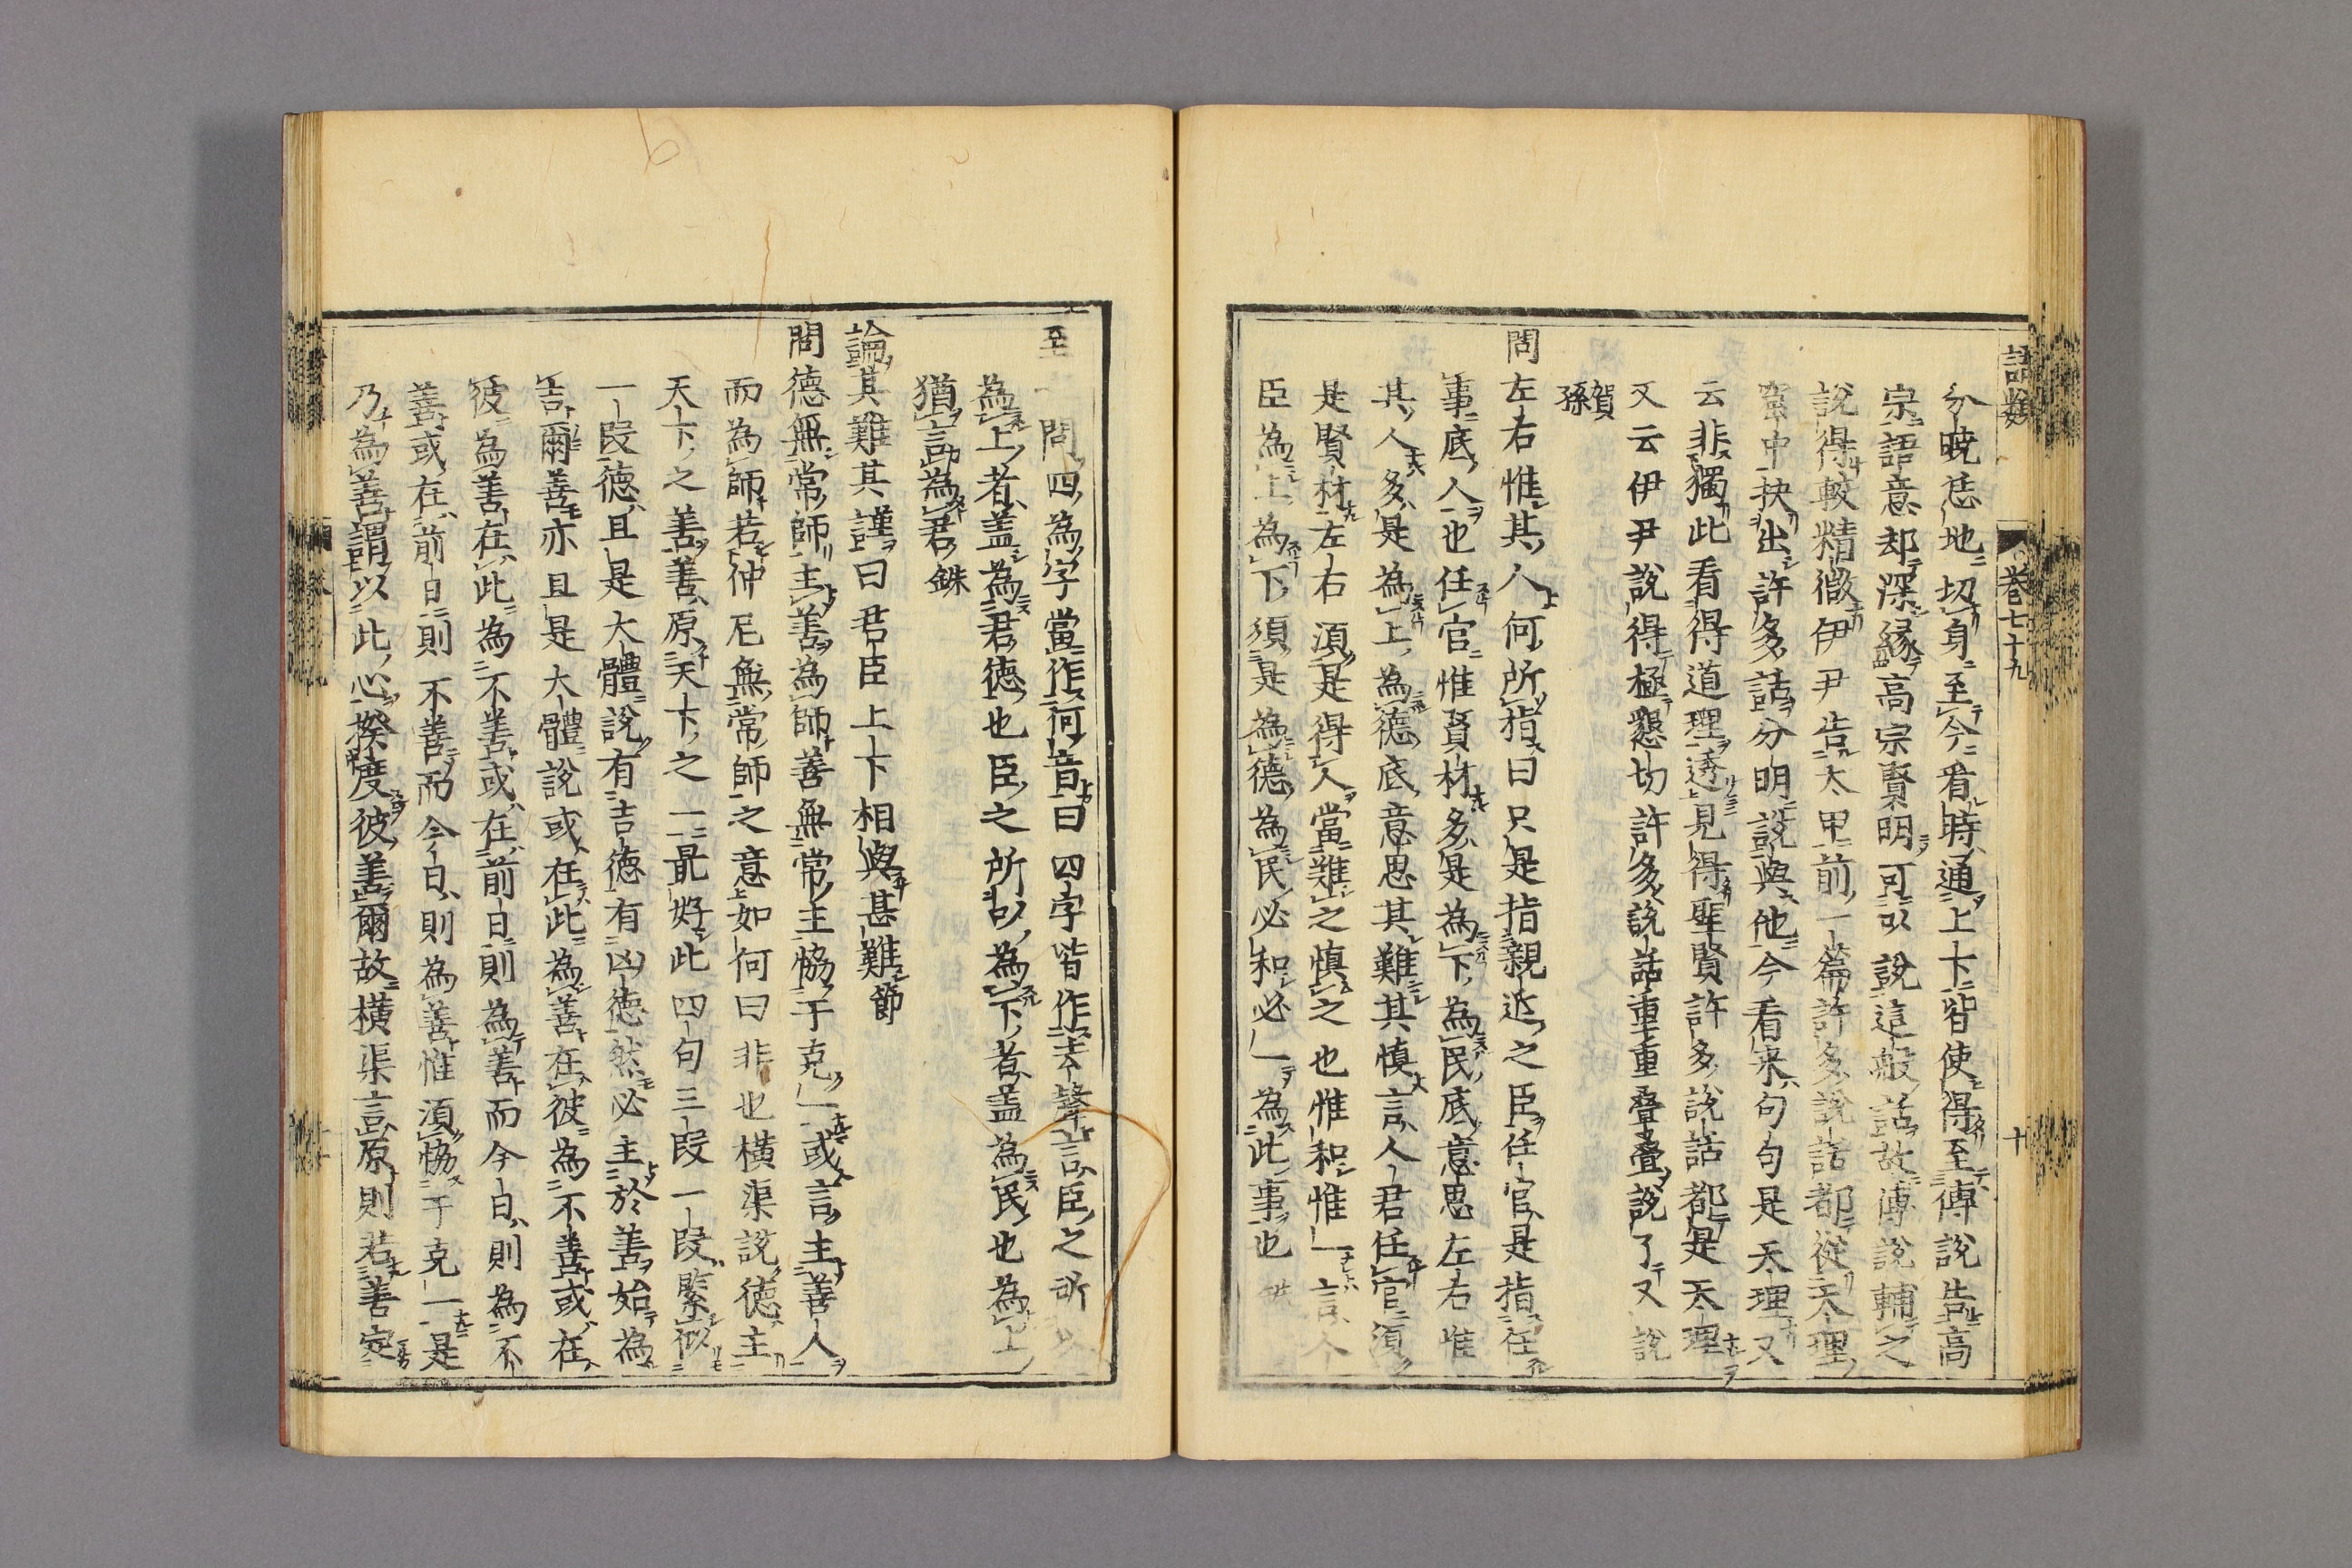 語類 卷七十九 十
分曉恁地切身至今看時通上下皆使得至傅說告高
宗語意却深緣高宗賢明可以說這般話故傅說輔之
說得較精微伊尹告太甲前一篇許多說話都從天理
窠中抉出許多話分明說與他今看来句句是天理又
云非獨此看得道理透見得聖賢許多說話都是天理
又云伊尹說得極懇切許多說話重重疊疊說了又說
賀孫
問左右惟其人何所指曰只是指親近之臣任官是指任
事底人也任官惟賢材多是為下為民底意思左右惟
其人多是為上為德底意思其難其慎言人君任官須
是賢材左右須是得人當難之慎之也惟和惟一言人
臣為上為下須是為德為民必和必一為此事也
至 問四為字當作何音曰四字皆作去聲言臣之所以
為上者盖為君德也臣之所以為下者盖為民也為上
猶言為君銖
論其難其謹曰君臣上下相與甚難節
問德無常師主善為師善無常主協于克一或言主善人
而為師若仲尼無常師之意如何曰非也橫渠說德主
天下之善善原天下之一最好此四句三段一段緊似
一段德且是大體說有吉德有凶德然必主於善始為
吉爾善亦且是大體說或在此為善在彼為不善或在
彼為善在此為不善或在前日則為善而今日則為不
善或在前日則不善而今日則為善惟須協于克一是
乃為善謂以此心揆度彼善爾故橫渠言原則若善定